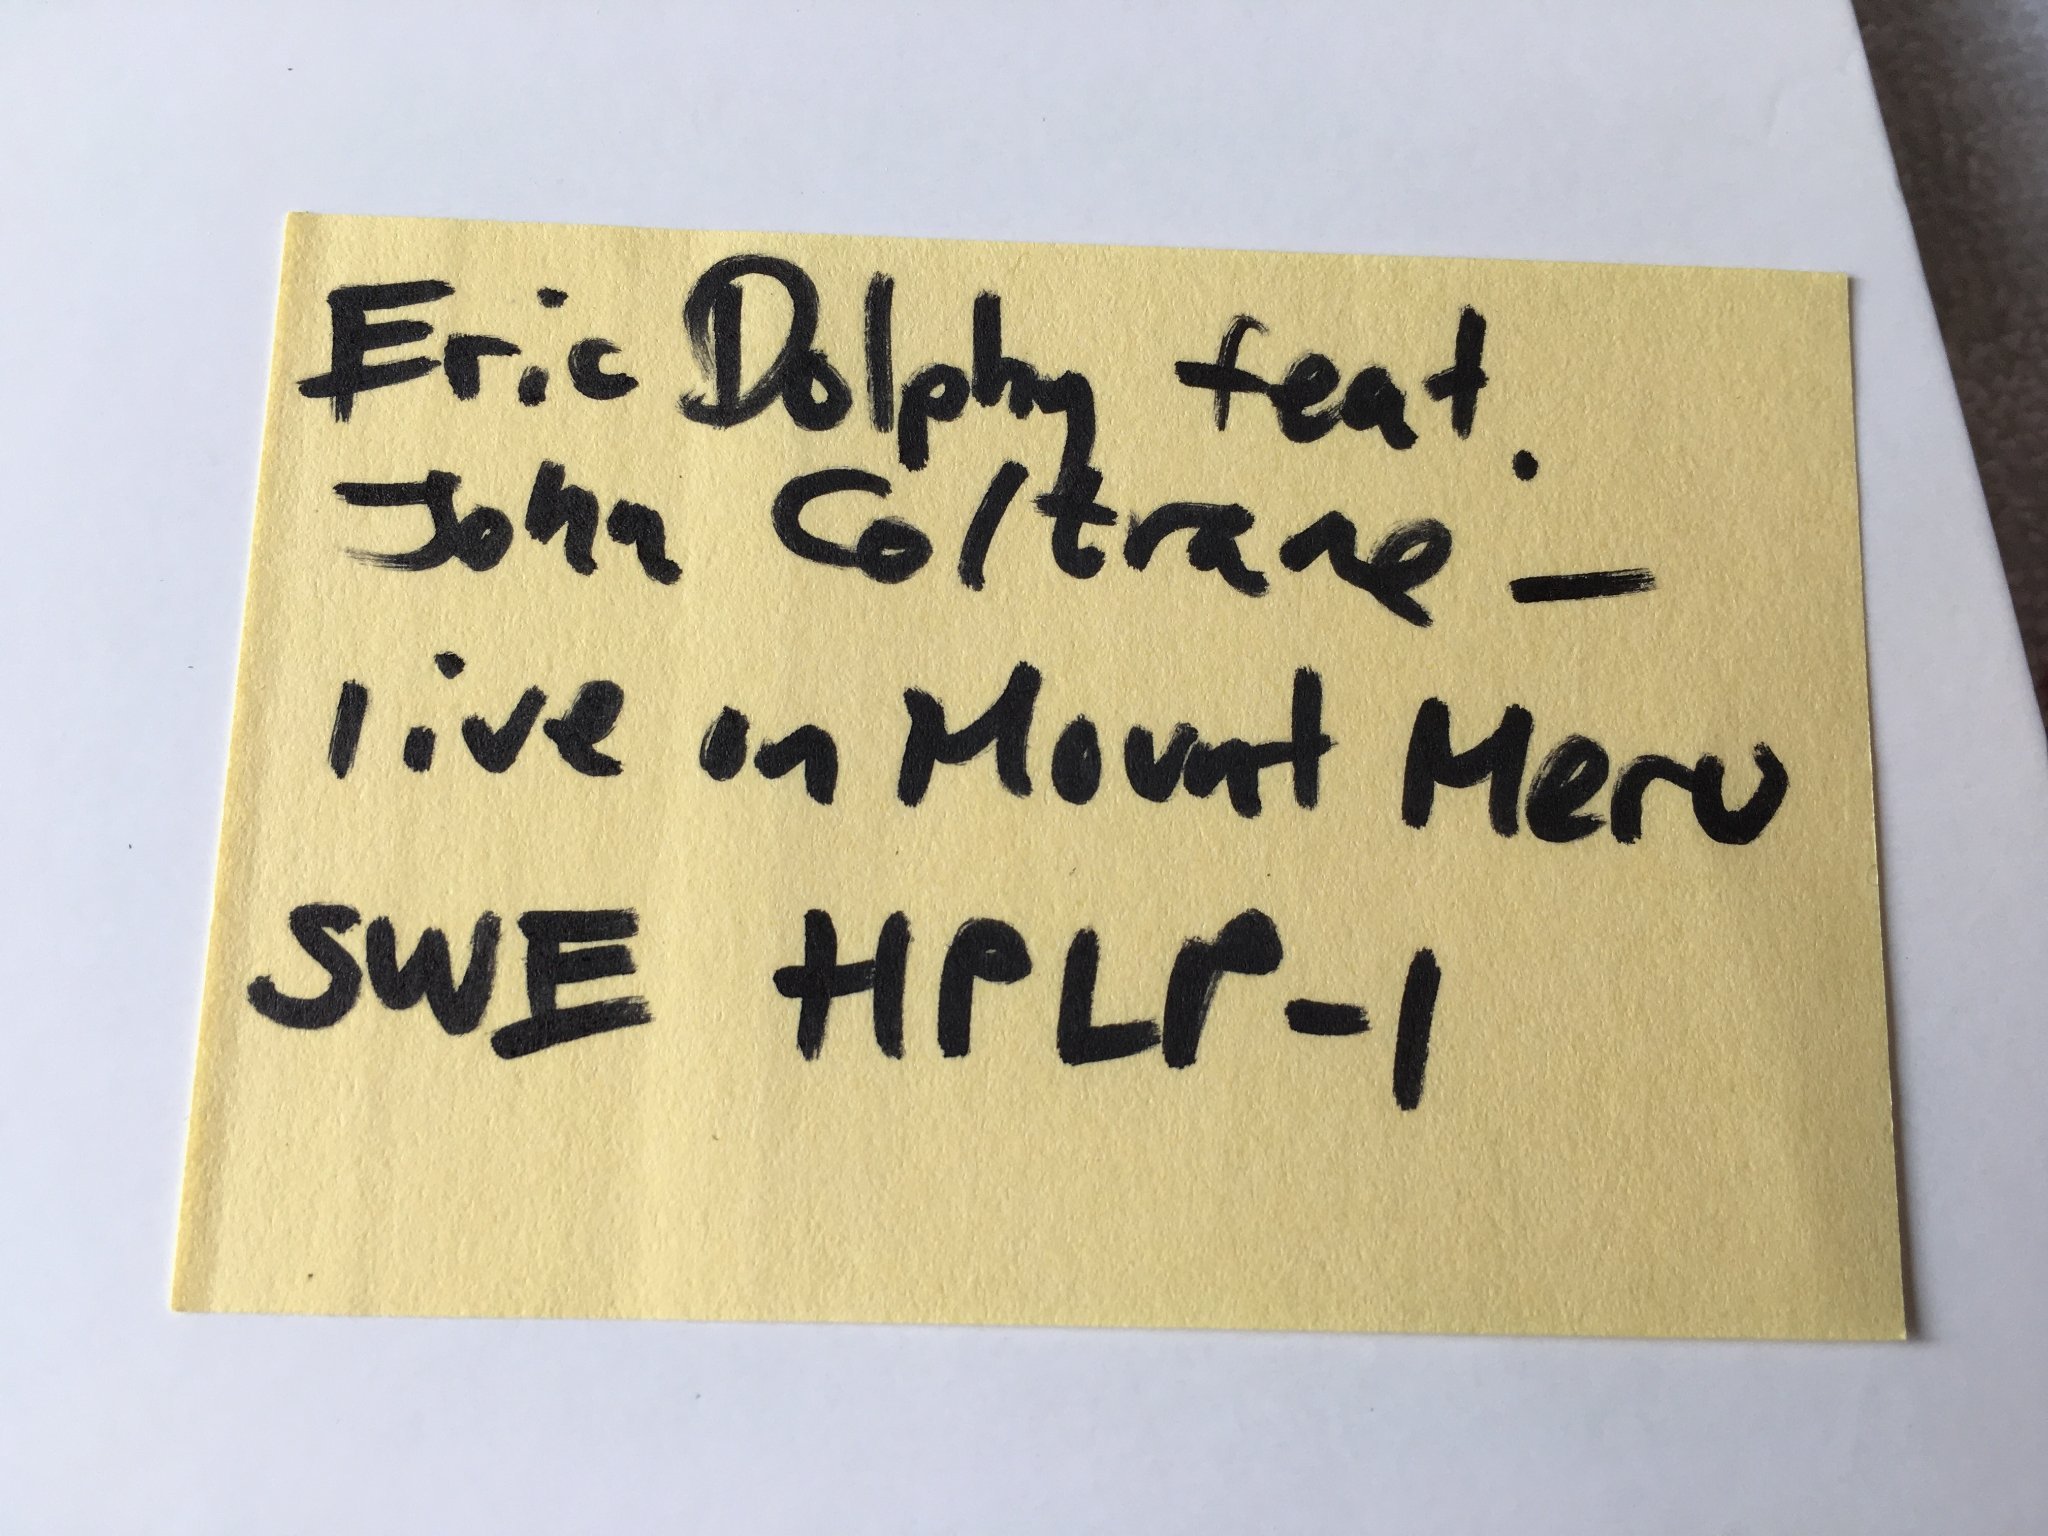 Eric Dolphy feat.
John Coltrane –
live on Mount Meru
SWE HPLP-1